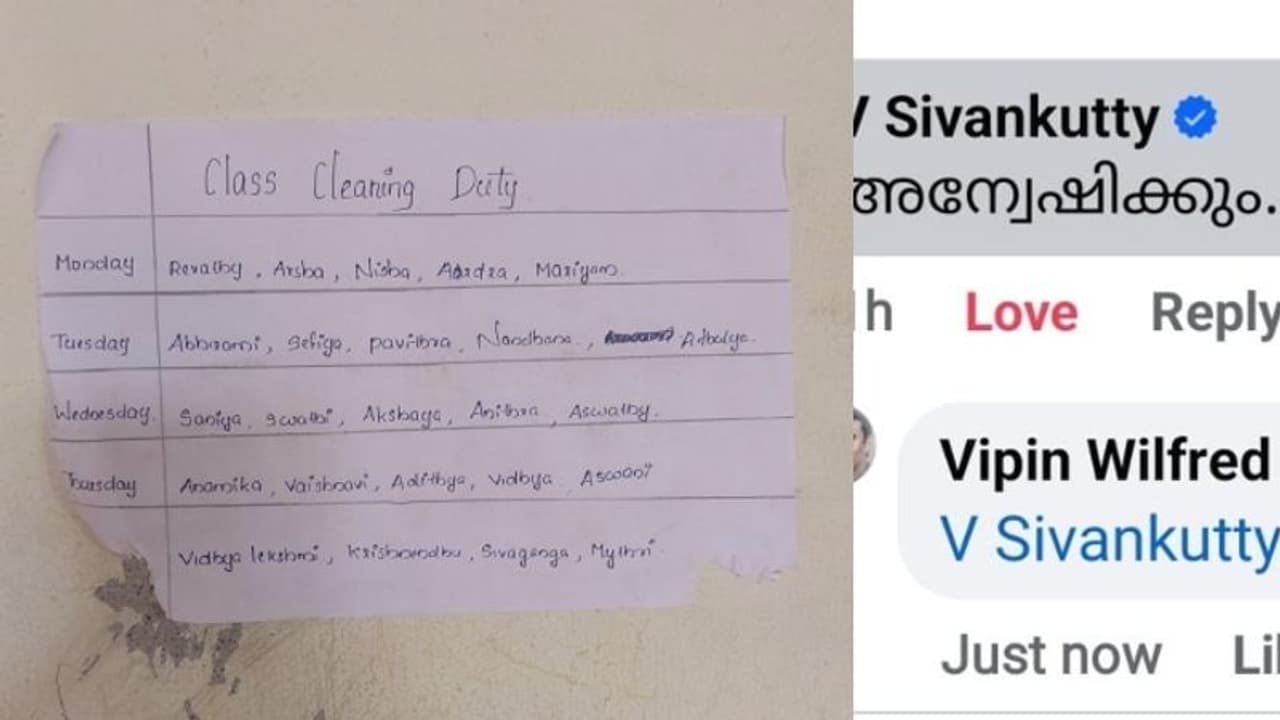 Class Cleaning Duty
Monday Revathy, Arsha, Nisha, Aardra, Mariyam.
Tuesday Abhirami, Sefiya, pavithra, Nandhana,
Wednesday Saniya, Swathi, Akshaya, Anithra, Aswathy.
Thursday Anamika, Vaishnavi, Adithya, Vidhya, Aswani
Vidhya lekshmi, Krishnendhu, Sivaganga, Mythri
V Sivankutty
അന്വേഷിക്കും.
h Love Reply
Vipin Wilfred
V Sivankutty
Just now Li